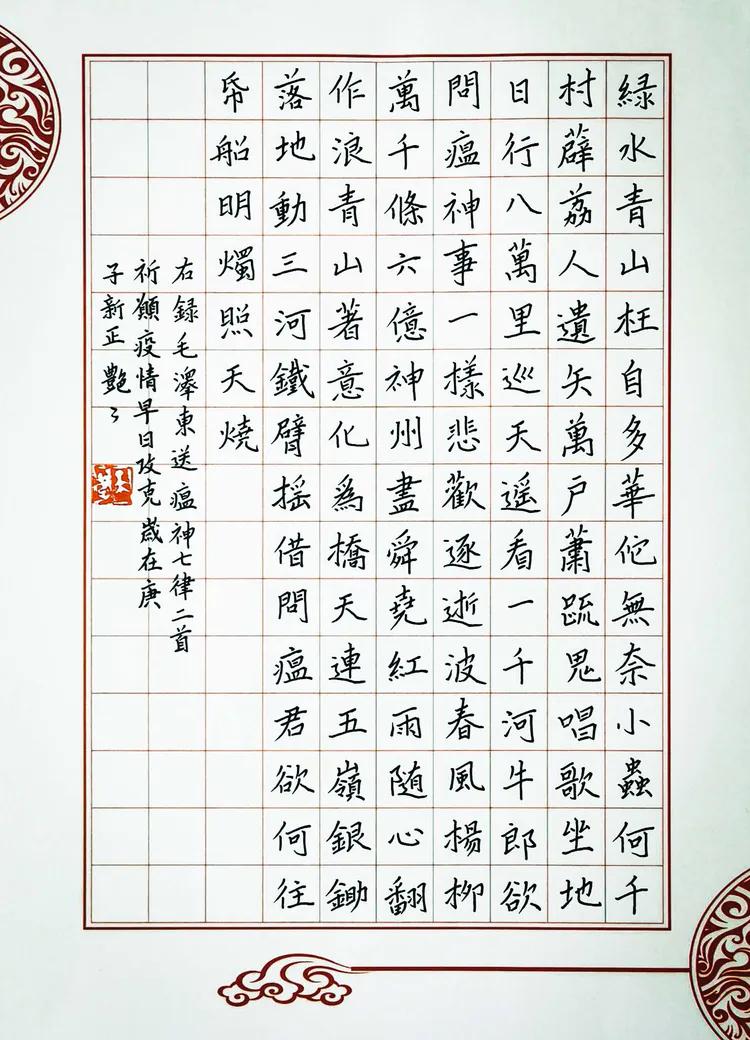 緑水青山枉自多華佗無奈小蟲何千
村薜荔人遺矢萬戶蕭疏鬼唱歌坐地
日行八萬里巡天遥看一千河牛郎欲
問瘟神事一樣悲歡逐逝波春風楊柳
萬千條六億神州盡舜堯紅雨随心翻
作浪青山著意化爲橋天連五嶺銀鋤
落地動三河鐵臂摇借問瘟君欲何往
帋船明燭照天燒
右録毛澤東送瘟神七律二首
祈願疫情早日攻克歲在庚
子新正艷〻